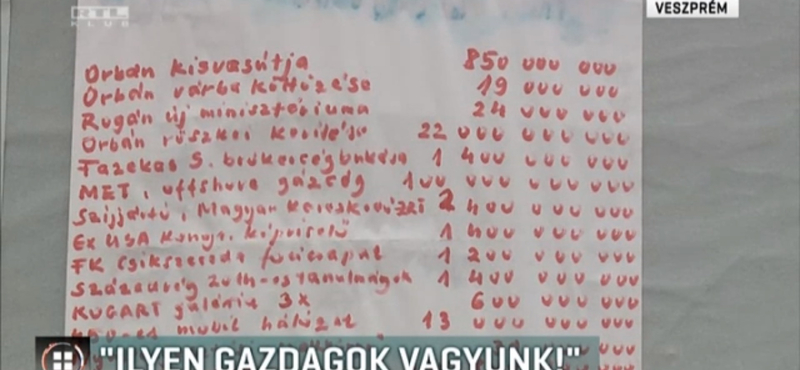 RTL KLUB
VESZPRÉM
Orbán kisvasútja 850 000 000
Orbán várba költözése 19 000 000
Rogán új minisztóriuma 24 000 000
Orbán röszkei kerítése 22 000 000 000
Fazekas S. brókercégbukása 1 400 000 000
MET, offshore gázcég 100 000 000 000
Szijjártó, Magyar 2 400 000 000
Ex USA kongr. képviselő 1 400 000 000
FK Csíkszereda focicsapat 1 200 000 000
Századvég zoth-es tanulmányok 1 400 000 000
KOGART galéria 3x 600 000 000
mobil hálózat 13 000 000 000
"ILYEN GAZDAGOK VAGYUNK!"